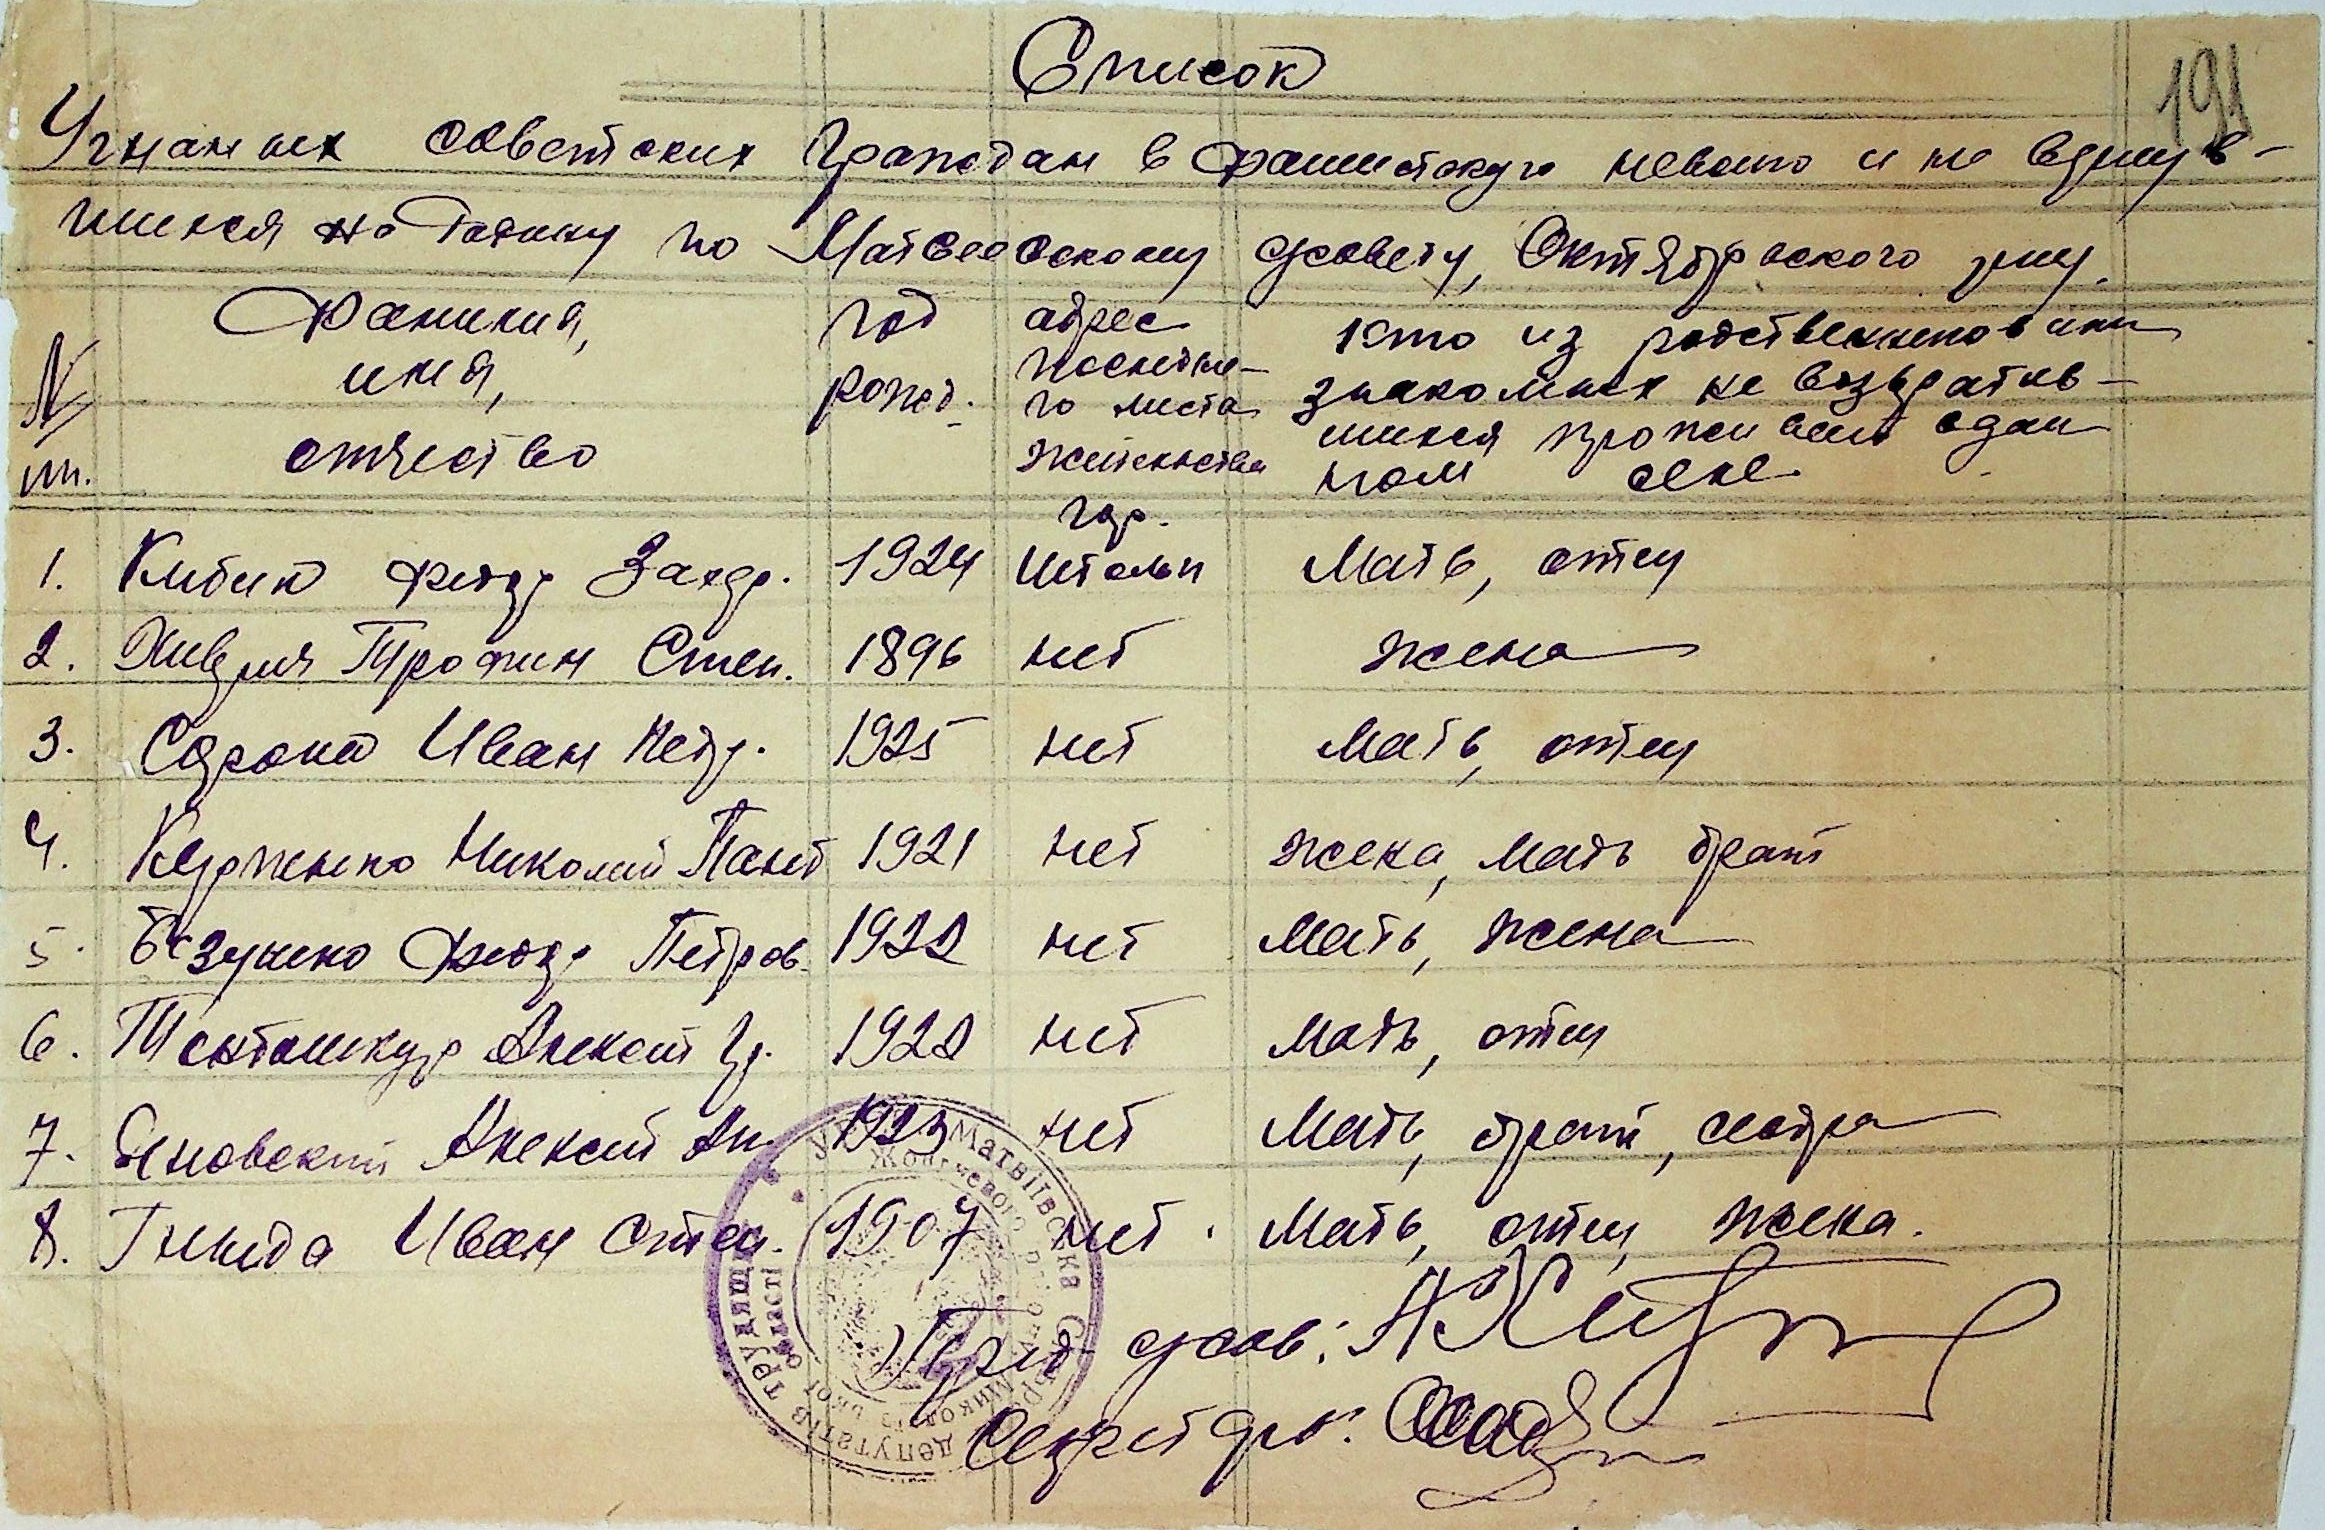 191
Список
Угнаных советских граждан в фашистскую неволю и не вернув-
шихся на Родину по Матвеевскому с/совету, Октябрьского р-ну.
№ пп.
Фамилия, имя, отчество
год рожд.
адрес последне-го места жительства
кто из родственников или знакомых не возвратив-шихся проживает в дан-ном селе
1. Федор Захар. 1924 гор. Мать, отец
2. Трофим Степ. 1896 нет жена
3. Сорока Иван Петр. 1925 нет Мать, отец
4. Николай Пант 1921 нет жена, мать брат
5. Федор Петров. 1922 нет Мать, жена
6. Алексей Гр. 1922 нет Мать, отец
7. Яновский Алексей Ан. 1923 нет Мать, брат, сестра
8. Гнида Иван Степ. 1907 нет. Мать, отец, жена.
Пред. с/сов:
Секретарь:
Матвіївська
депутатів трудящих
області